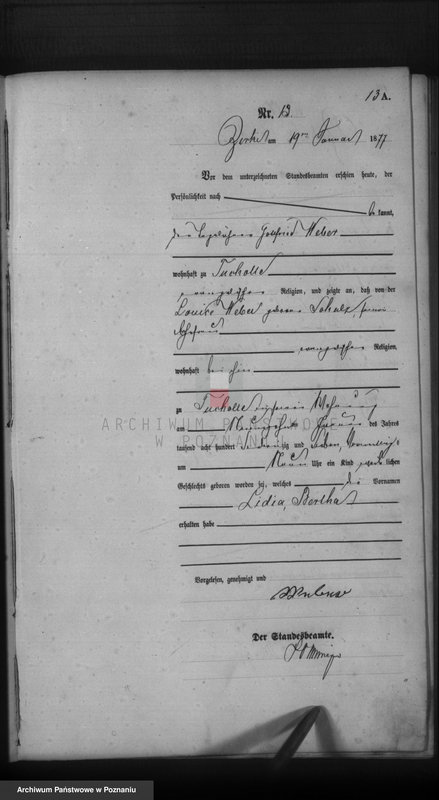 13 A.
Nr. 13.
Zerkow am 19ten Januar 1877
Vor dem unterzeichneten Standesbeamten erschien heute, der
Persönlichkeit nach
be kannt,
der Gottfried Weber
wohnhaft zu Tucholle
evangelischer Religion, und zeigte an, daß von der
Louise Weber geborene Schulz, seiner
Ehefrau
evangelischer Religion,
wohnhaft bei ihm
zu Tucholle in seiner Wohnung
am Januar des Jahres
tausend acht hundert siebenzig und sieben, Vormittags
um Uhr ein Kind weiblichen
Geschlechts geboren worden sei, welches die Vornamen
Lidia, Bertha
erhalten habe
Vorgelesen, genehmigt und
Der Standesbeamte.
ARCHIWUM PAŃSTWOWE
W POZNANIU
Archiwum Państwowe w Poznaniu